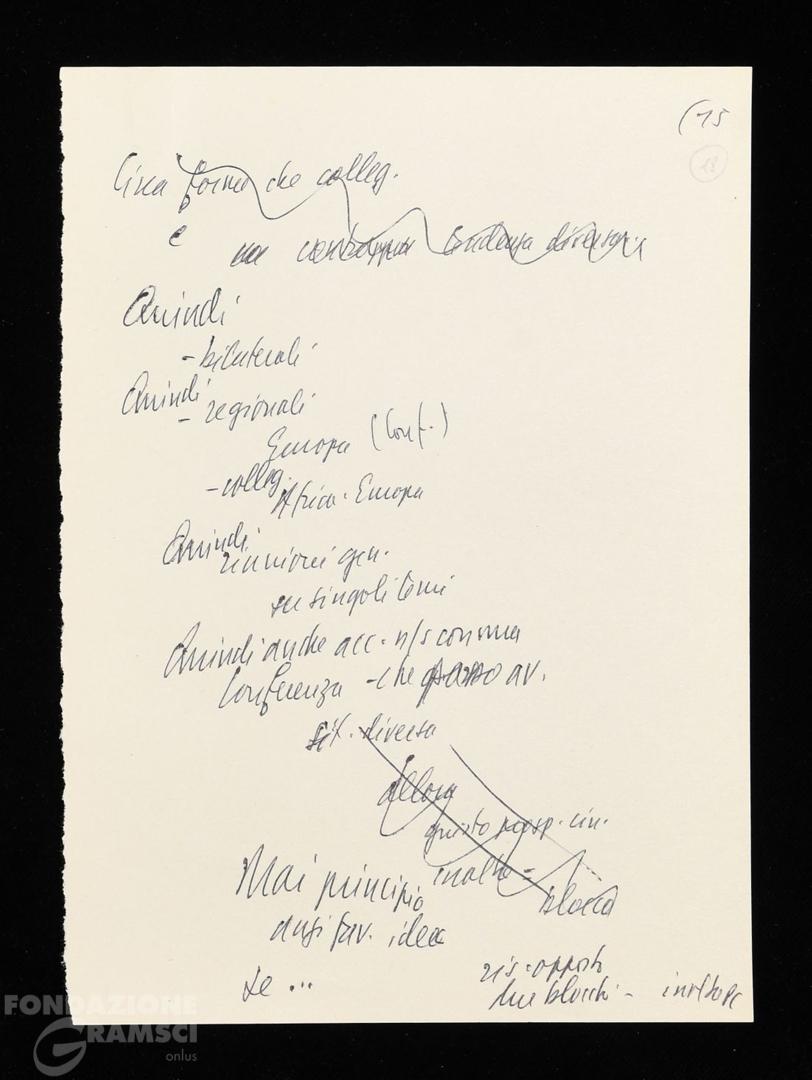 (15
18
Circa forme che colleg.
e
non contrapp tendenza diversa
Quindi
- bilaterali
Quindi
- regionali
Europa (Conf.)
- colleg.
Africa-Europa
Quindi
riunioni gen.
su singoli temi
Quindi anche acc. n/s con una
Conferenza - che passo av.
sit. diversa
allora
questo
inoltre -
blocco
Mai principio
anzi fav. idea
se ...
ris. opposto
due blocchi -
FONDAZIONE
GRAMSCI
onlus